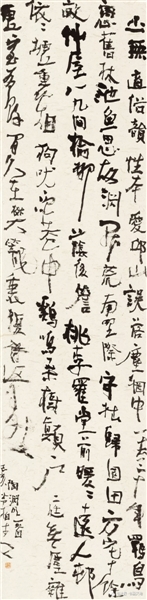 少無適俗韻性本愛邱山誤落塵網中一去三十年羈鳥
戀舊林池魚思故淵開荒南野際守拙歸園田方宅十餘
畝草屋八九間榆柳蔭後簷桃李羅堂前曖曖遠人邨
依依墟里煙狗吠深巷中鷄鳴桑樹顛戶庭無塵雜
虛室有餘閒久在樊籠裏復得返自然
陶淵明